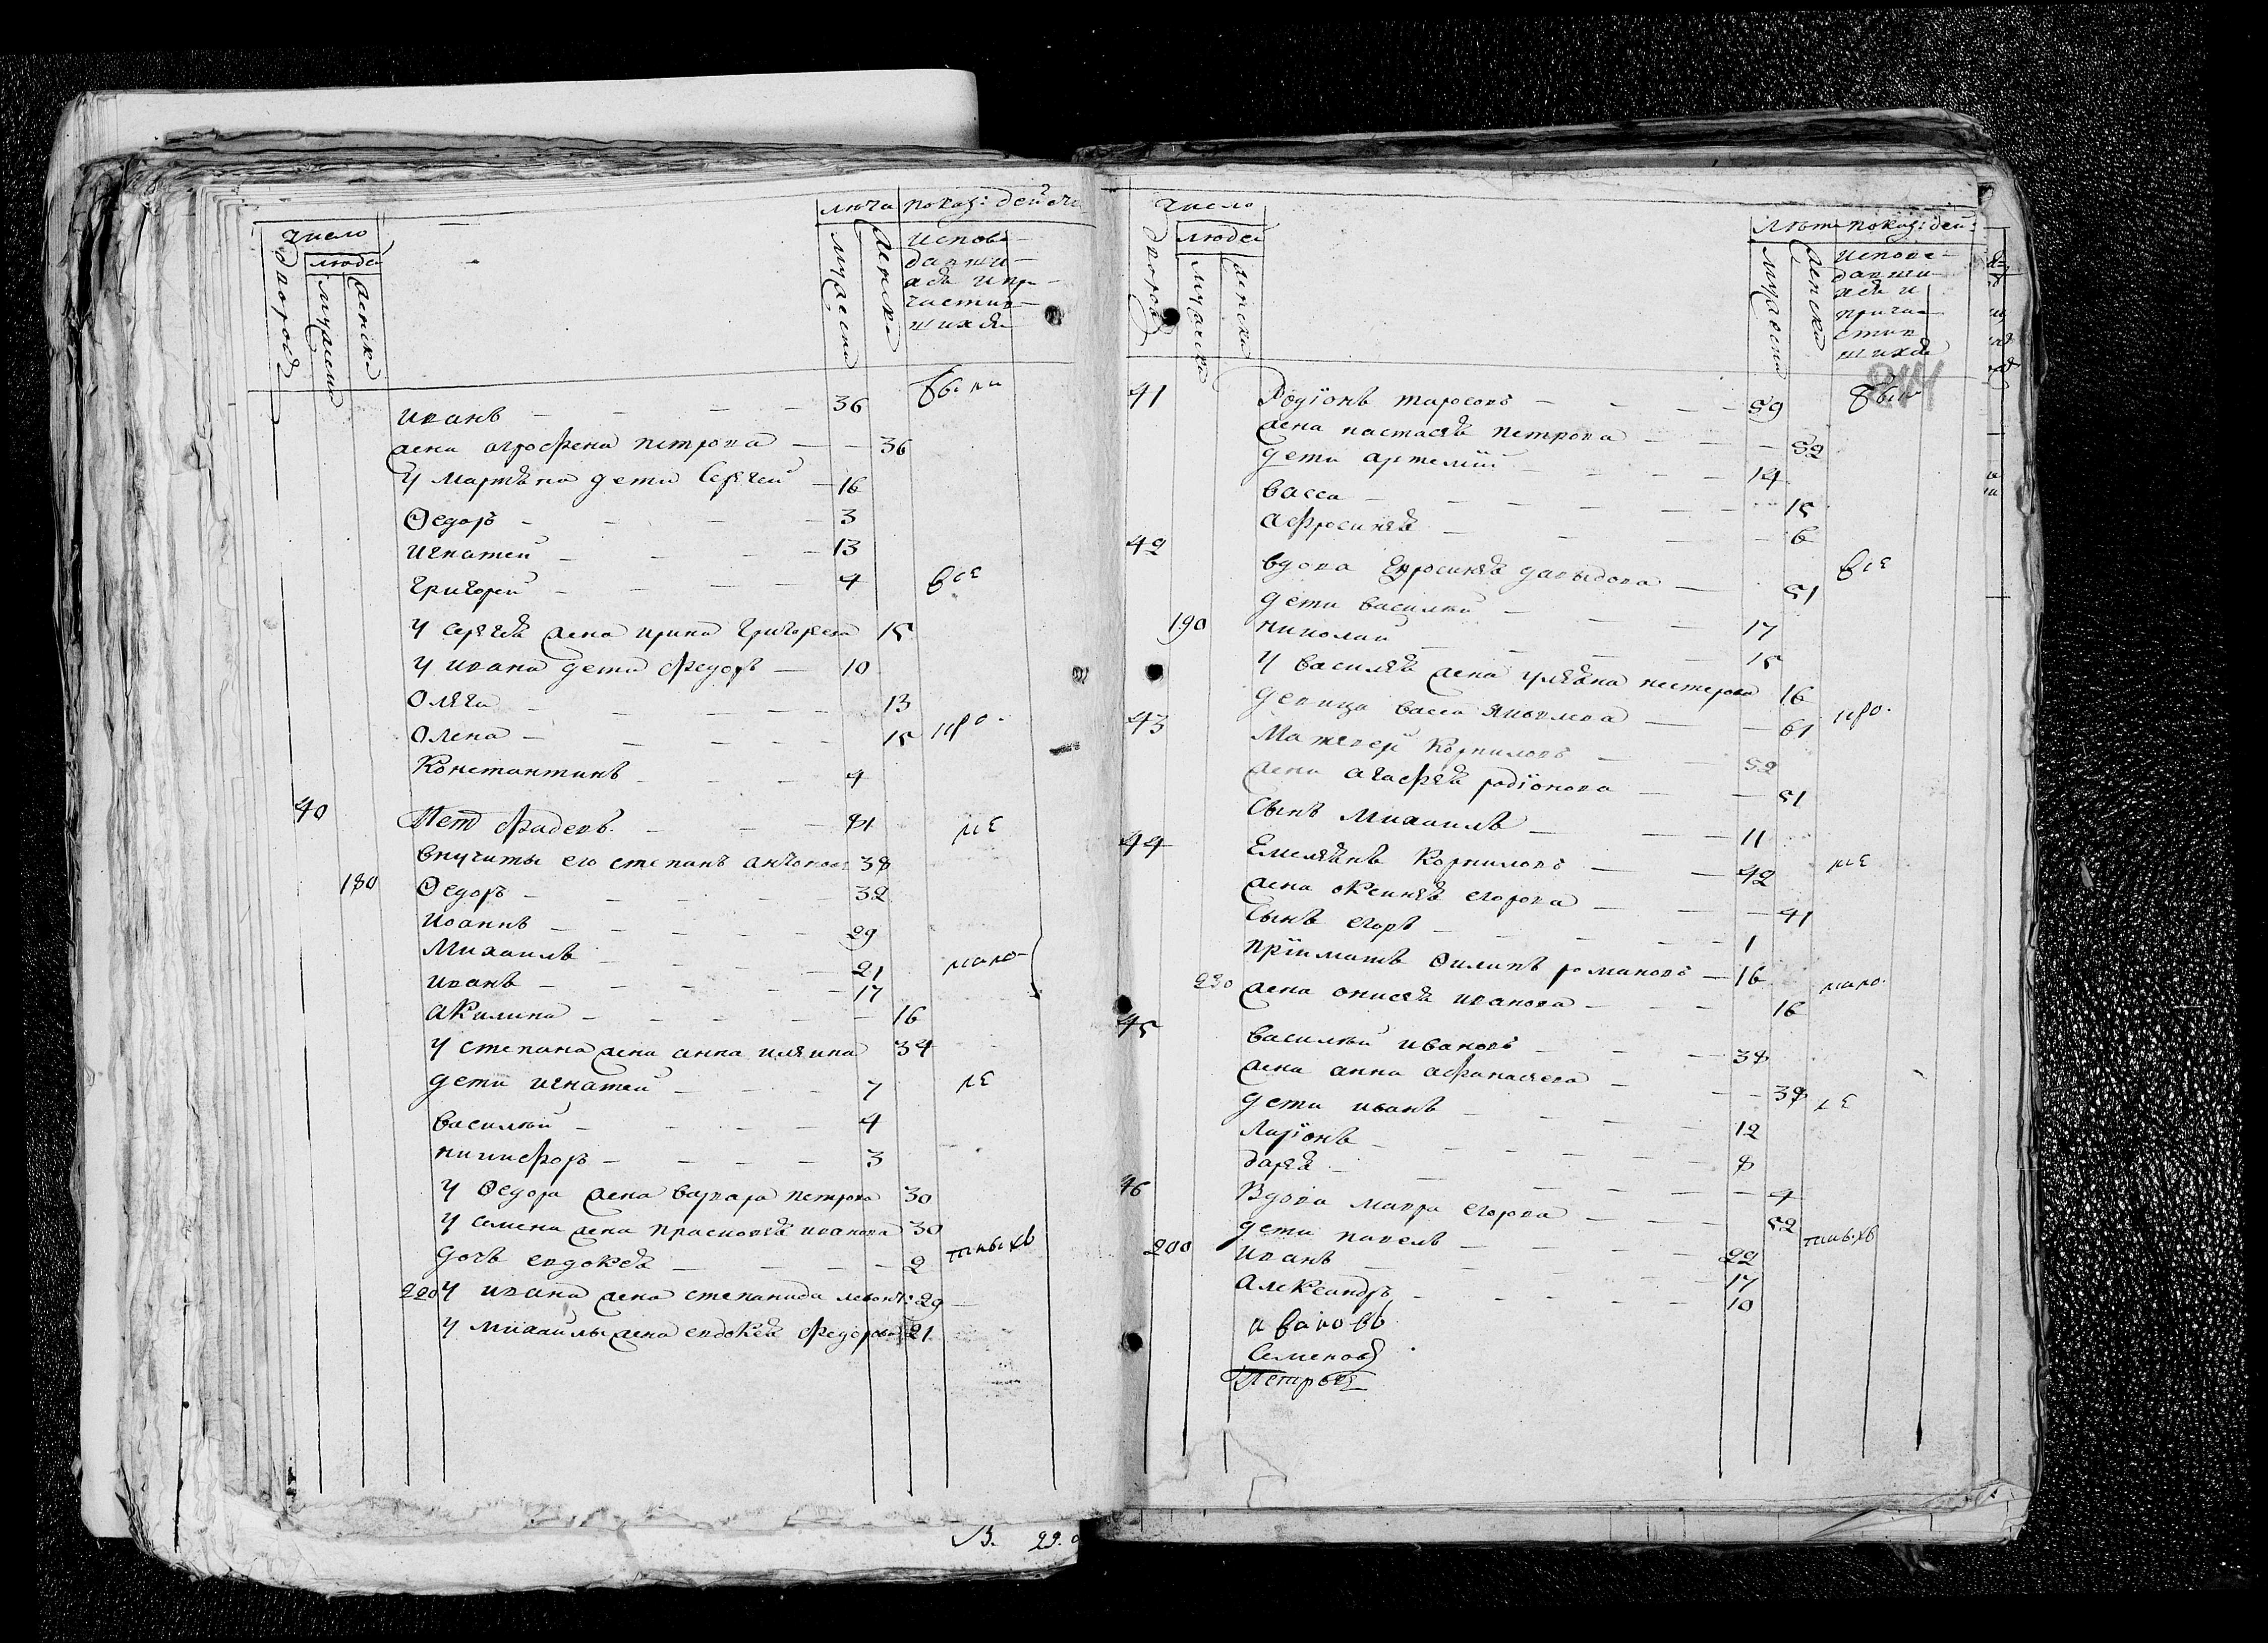 число
люде
дворов
мужеска
женска
лета
показ: дейст
мужеска
женска
испове-
давши-
яся и при-
частив-
шихся
иванъ — 36 были
жена агрофена петрова — 36
у мартына дети Сергей — 16
Ѳедоръ — 3
игнатей — 13
григорей — 4 все
у сергея жена ирина григорьева 15
у ивана дети федоръ — 10
Олга — 13
Олена — 15 испо-
Константинъ — 4
40 Петръ фадеевъ — 81 не
внучаты его степанъ антоновъ 38
180 Ѳедоръ — 32
иоаннъ — 29
Михаилъ — 21
иванъ — 17
акилина — 16
у степана жена анна ильина 34
дети игнатей — 7
василий — 4
никифоръ — 3
у Ѳедора жена варвара петрова 30
у семена жена прасковья иванова 30
дочь евдокея — 2
220 у ивана жена степанида левонть: 29
у михаилы жена евдокея федорова 21
число
людей
дворов
мужеска
женска
лета
показ: дей:
мужеска
женска
испове-
давши-
яся и
прича-
стив
шихся
244
41 Родїонъ тарасовъ — 59 были
жена настасья петрова — 52
дети артемий — 14
васса — 15
афросинья — 6
42 вдова Ефросинья давыдова — 51 все
дети василий — 17
190 николай — 15
у василья жена ульяна нестерова 16
девица васса яковлева — 61
43 Матвей Корниловъ — 52
жена агафья родїонова — 51
Сынъ Михаилъ — 11
44 Емельянъ Корниловъ — 42
жена оксинья егорова — 41
Сынъ егоръ — 1
прїиматъ Филипъ романовъ — 16
230 жена онисья иванова — 16
45 василий ивановъ — 38
жена анна афанасьева — 38
дети иванъ — 12
Ларїонъ — 8
дарья — 4
46 Вдова мавра егорова — 52
дети павелъ — 22
200 иванъ — 17
александръ — 10
ивановъ
Семеновъ
Петровъ